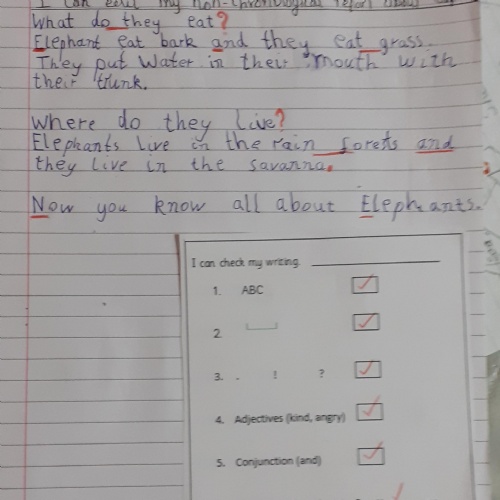 I can edit my non-chronological report about
What do they eat?
Elephant eat bark and they eat grass.
They put Water in their mouth with
their trunk.
Where do they live?
Elephants live in the rain forests and
they live in the savanna.
Now you know all about Elephants.
I can check my writing.
1. ABC
2.
3. . ! ?
4. Adjectives (kind, angry)
5. Conjunction (and)